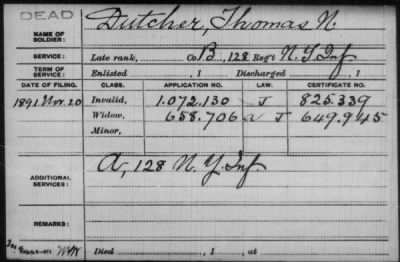 DEAD
NAME OF SOLDIER: Dutcher, Thomas N.
SERVICE: Late rank, Co B, 128 Reg't N.Y. Inf
TERM OF SERVICE: Enlisted , 1 Discharged , 1
DATE OF FILING. CLASS. APPLICATION NO. LAW. CERTIFICATE NO.
1891 Nov. 20 Invalid, 1.072.130 J 825.339
Widow, 658.706 a J 649.945
Minor,
ADDITIONAL SERVICES: A, 128 N.Y. Inf.
REMARKS:
Died , 1 , at